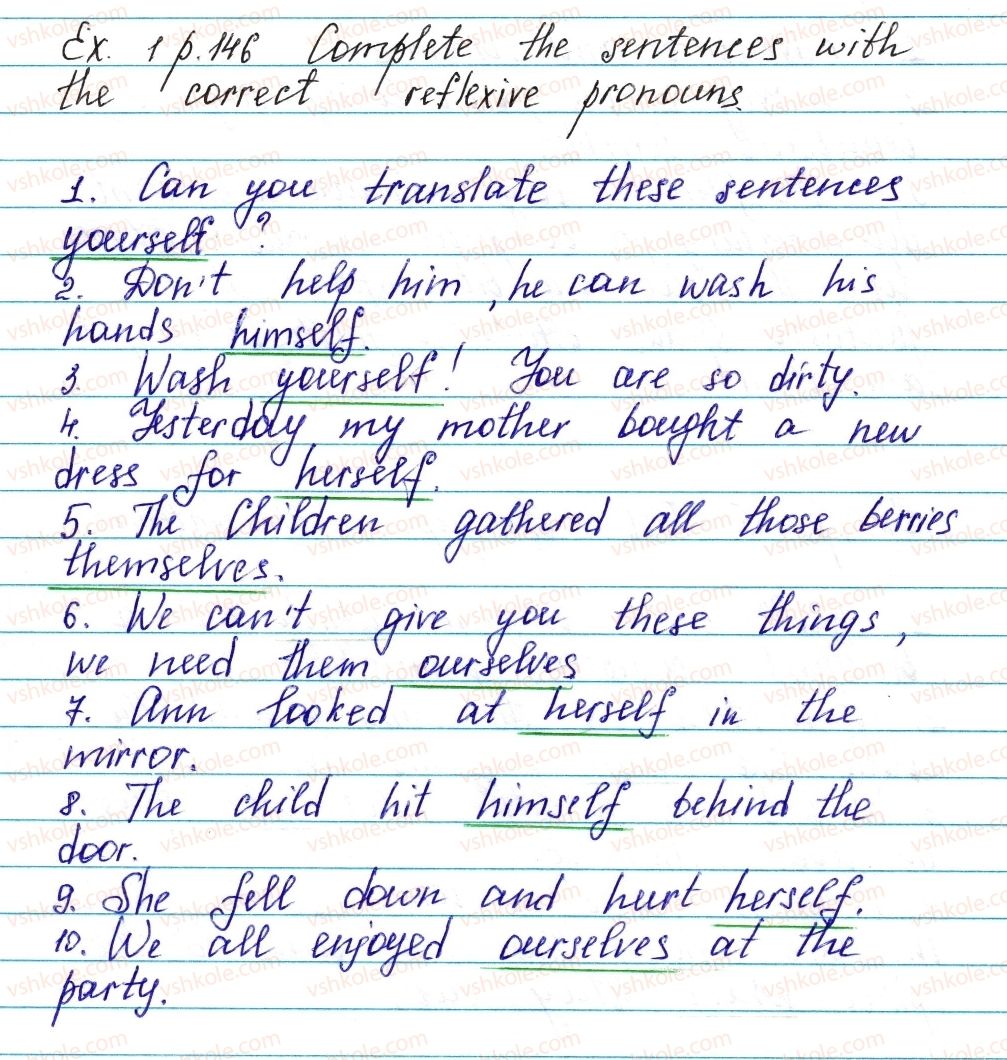 Ex. 1 p.146 Complete the sentences with
the correct reflexive pronouns
1. Can you translate these sentences
yourself?
2. Don't help him, he can wash his
hands himself.
3. Wash yourself! You are so dirty.
4. Yesterday my mother bought a new
dress for herself.
5. The Children gathered all those berries
themselves.
6. We can't give you these things,
we need them ourselves
7. Ann looked at herself in the
mirror.
8. The child hit himself behind the
door.
9. She fell down and hurt herself.
10. We all enjoyed ourselves at the
party.
vshkole.com